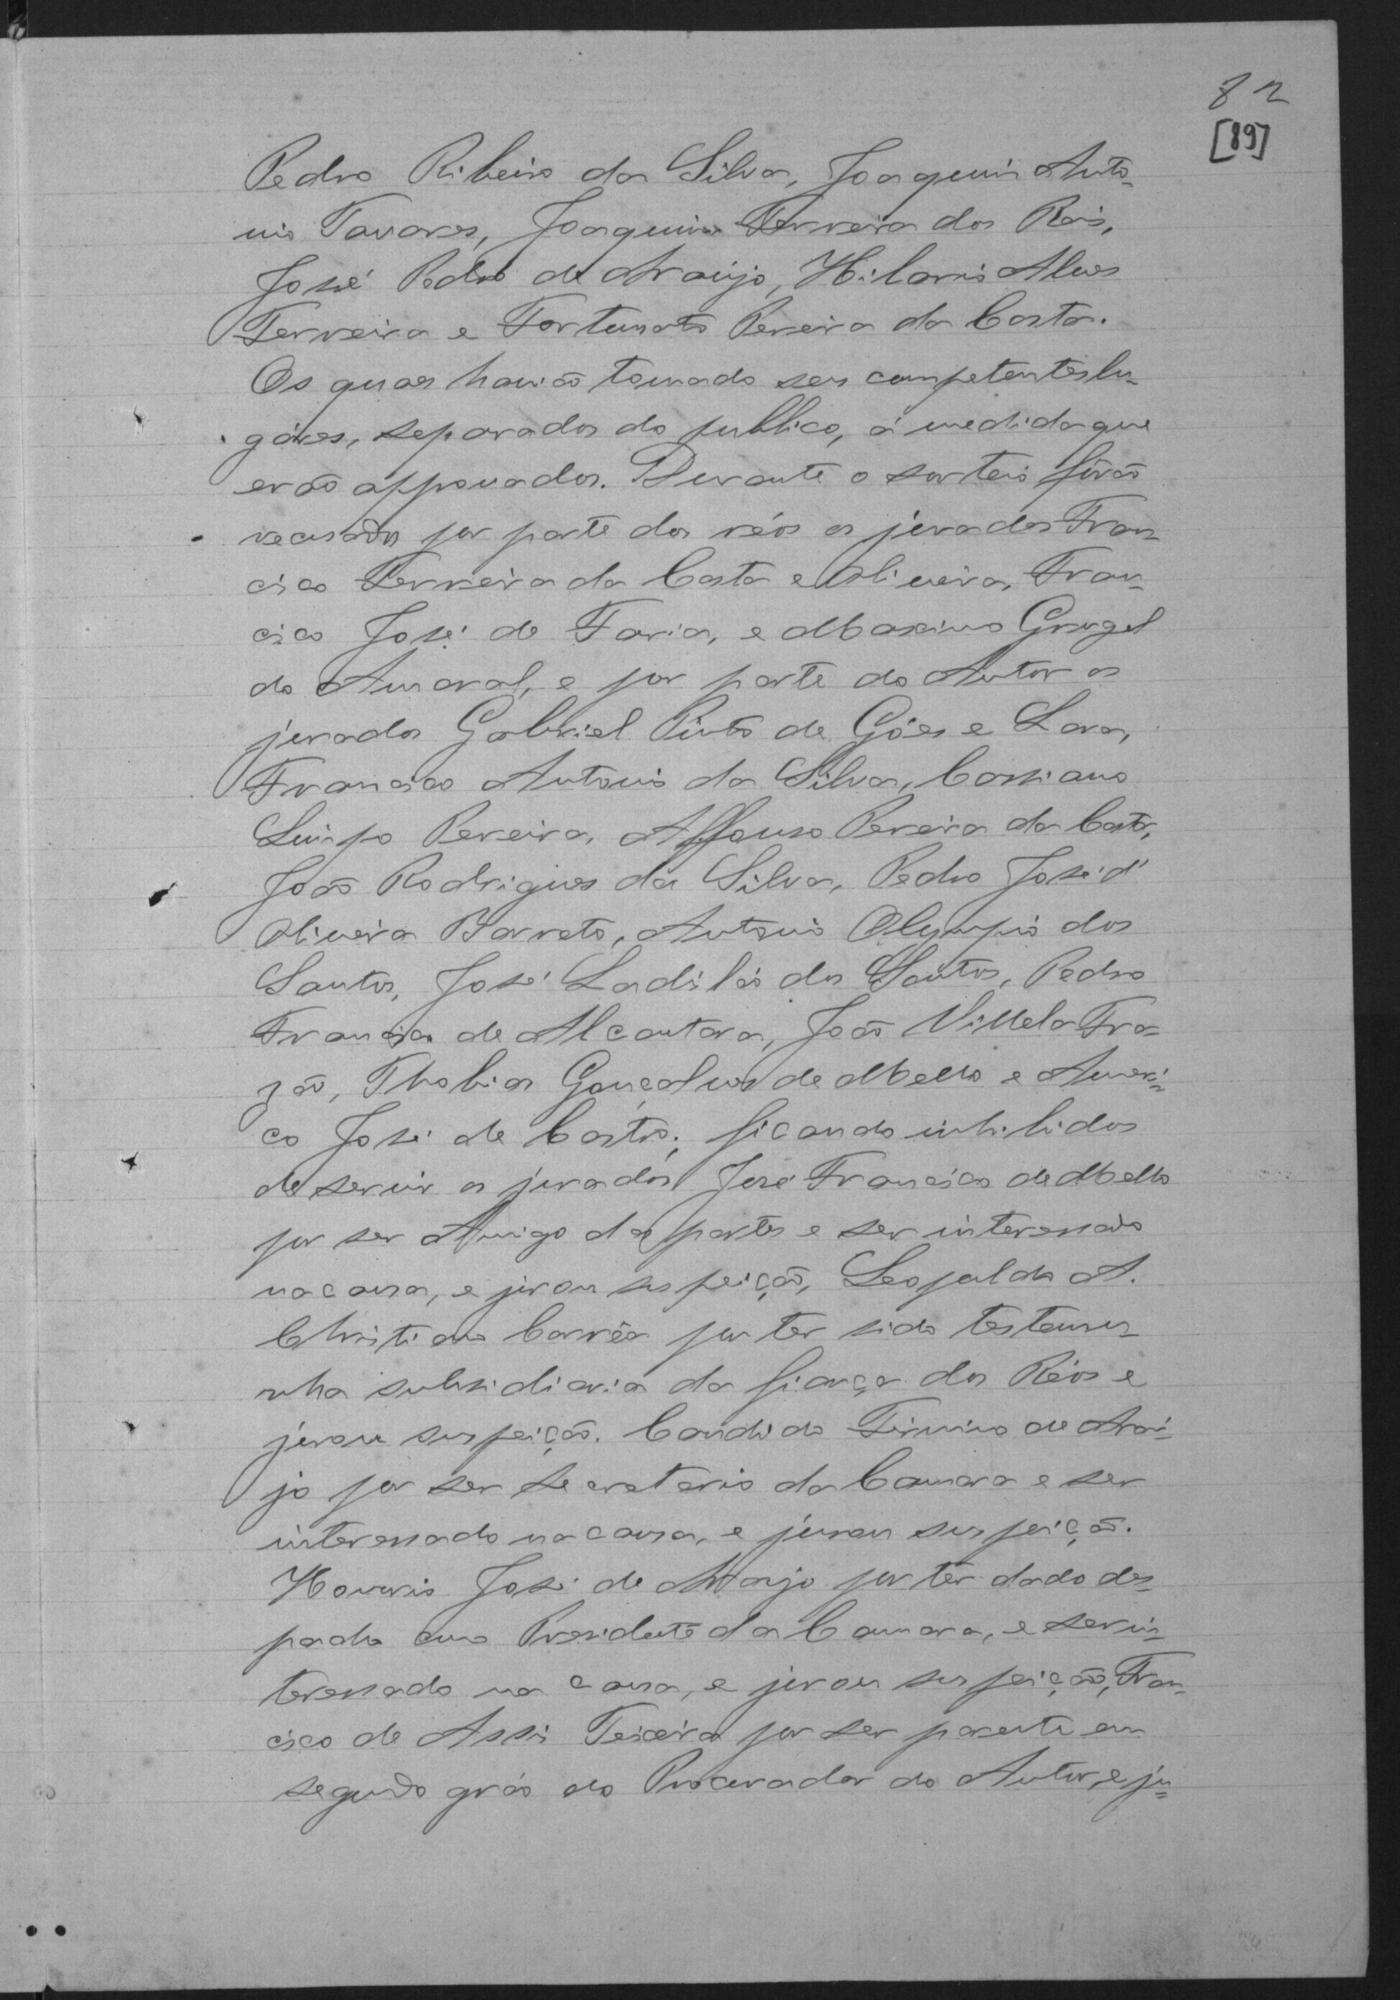 82
[89]
Pedro Ribeiro da Silva, Joaquim Anto-
nio Tavares, Joaquim Ferreira dos Reis,
José Pedro de Araújo, Hilario Alves
Ferreira e Fortunato Pereira da Costa.
Os quaes havião tomado seus competentes lu-
gáres, separados do publico, á medida que
erão approvados. Durante o sorteio fôrão
recusados por parte dos réos os jurados Fran-
cisco Ferreira da Costa e Oliveira, Fran-
cisco José de Faria, e Maximo Gurgel
do Amaral, e por parte do Autor os
jurados Gabriel Pinto de Góes e Lara,
Francisco Antonio da Silva, Cassiano
Quirpo Pereira, Affonso Pereira da Costa,
João Rodrigues da Silva, Pedro José d'
Oliveira Barreto, Antonio Olympio dos
Santos, José Ladiláo dos Santos, Pedro
Francisco de Alcantara, João Villela Fra-
zão, Thobias Gonçalves de Mello e Ameri-
co José de Castro; ficando inhibidos
de servir os jurados José Francisco de Mello
por ser Amigo das partes e ser interessado
na causa, e jurou suspeição, Leopoldo A.
Christiano Corrêa por ter sido testemu-
nha subsidiaria da fiança dos Réos e
jurou suspeição. Candido Firmino de Araú-
jo por ser Secretario da Camara e ser
interessado na causa, e jurou suspeição.
Honorio José de Araujo por ter dado des-
pacho como Presidente da Camara, e ser in-
teressado na causa, e jurou suspeição, Fran-
cisco de Assis Teixeira por ser parente em
segundo gráo do Procurador do Autor, e ju-